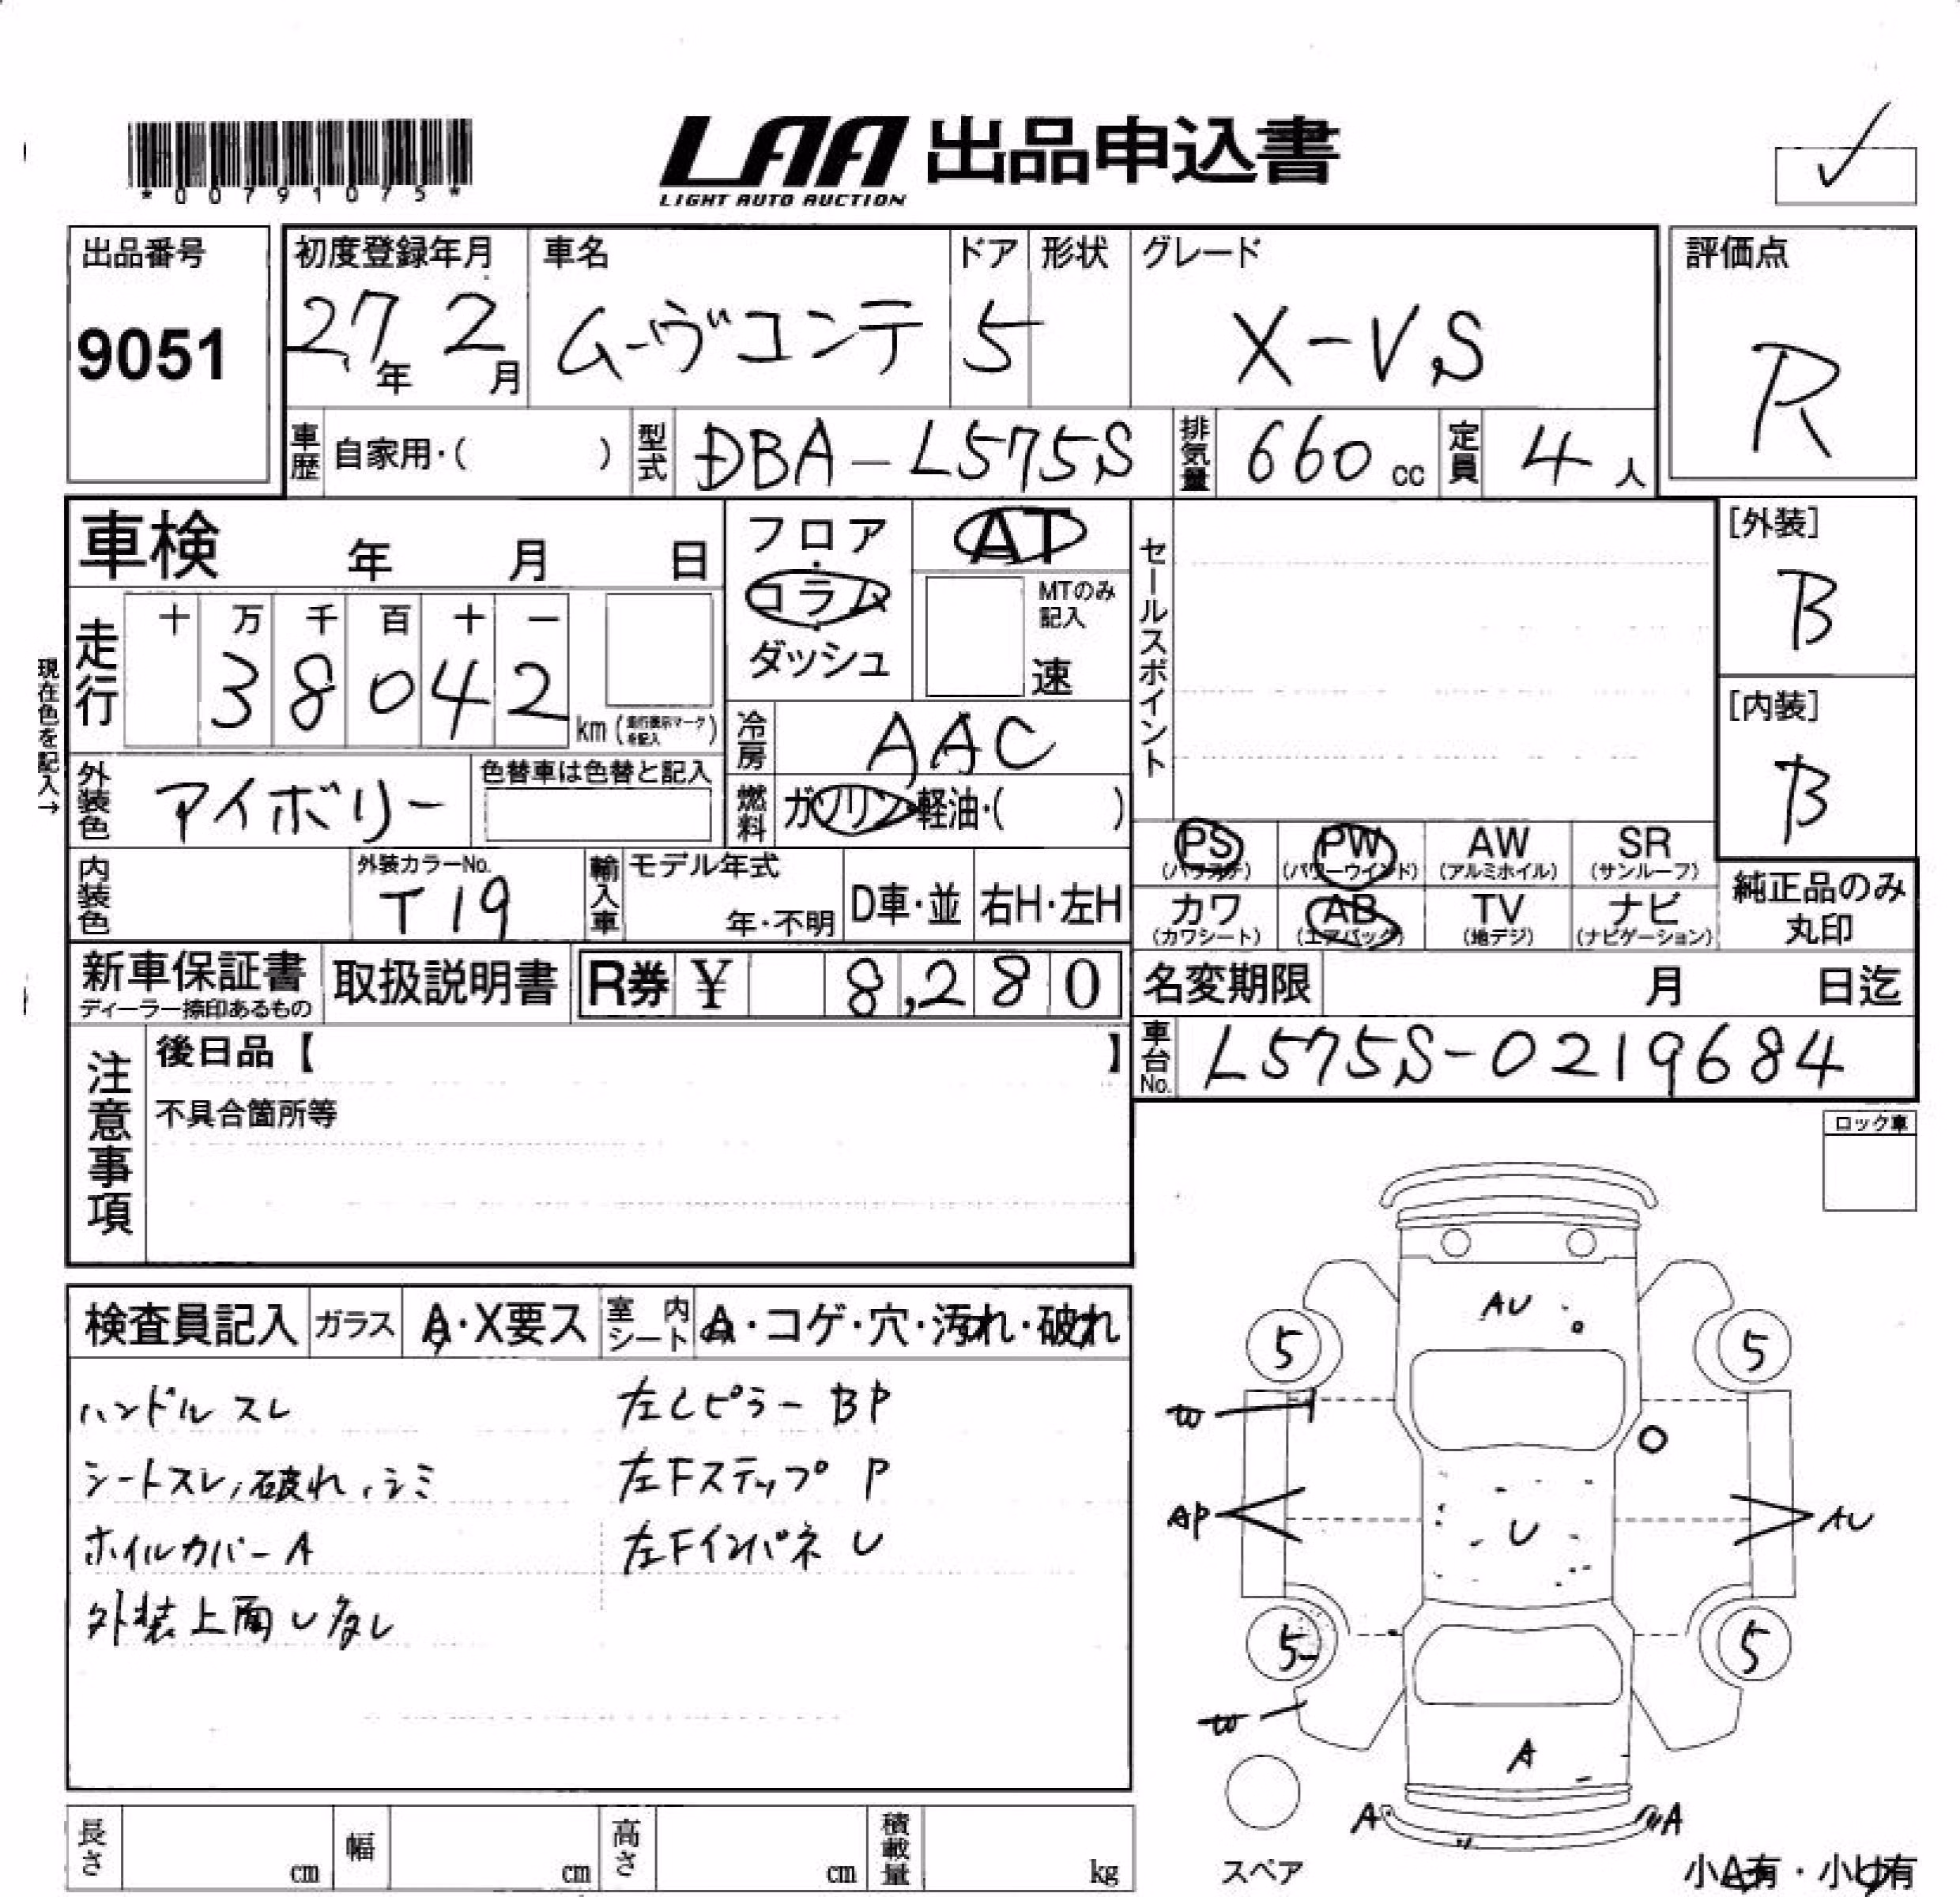 *00791075*
LAA 出品申込書
LIGHT AUTO AUCTION
出品番号
9051
初度登録年月
27年 2月
車名
ムーヴコンテ
ドア
5
形状
グレード
X-VS
評価点
R
車歴 自家用・( )
型式 DBA-L575S
排気量 660 cc
定員 4 人
車検 年 月 日
フロア
コラム
ダッシュ
AT
MTのみ記入
速
セールスポイント
[外装]
B
[内装]
B
現在色を記入→
走行
十 万 千 百 十 一
3 8 0 4 2
km (走行表示マークを記入)
冷房 AAC
外装色 アイボリー
色替車は色替と記入
燃料 ガソリン・軽油・( )
PS (パワステ)
PW (パワーウインド)
AW (アルミホイル)
SR (サンルーフ)
カワ (カワシート)
AB (エアバック)
TV (地デジ)
ナビ (ナビゲーション)
純正品のみ
丸印
内装色
外装カラーNo.
T19
輸入車 モデル年式
年・不明
D車・並
右H・左H
新車保証書
ディーラー捺印あるもの
取扱説明書
R券 ¥ 8,280
名変期限 月 日迄
車台No. L575S-0219684
注意事項
後日品【 】
不具合箇所等
ロック車
検査員記入
ガラス A・X要ス
室内シート A・コゲ・穴・汚れ・破れ
ハンドル スレ
シートスレ、破れ、シミ
ホイルカバー A
外装上面 U 多し
左Cピラー BP
左Fステップ P
左Fインパネ U
AU
5
5
W
AP
U
AU
5
5
W
A
A
A
スペア
小A有・小U有
長さ cm
幅 cm
高さ cm
積載量 kg